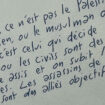 ce n'est pas le Pales
en, ou le musulman
c'est celui qui décide
ou les civils sont de
e assis et on subit
es. Les assassins de
sont des alliés objectif